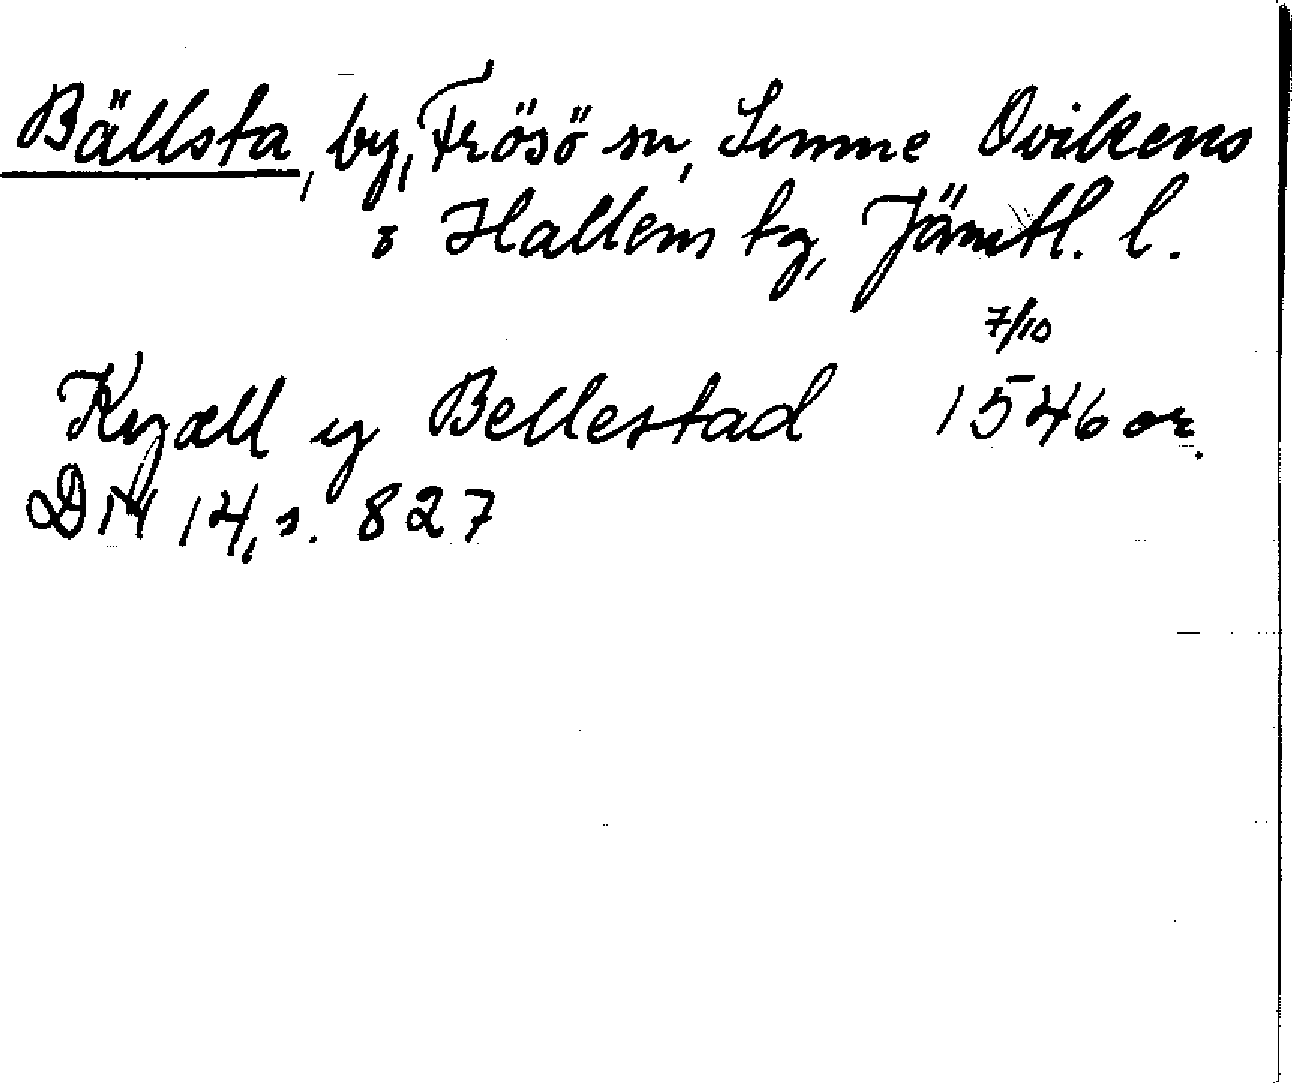 Bällsta, by, Frösö sn, Sunne Ovikens
o Hallens tg, Jämtl. l.
7/10
Kyæll y Bellestad 1546 or.
DN 14, s. 827